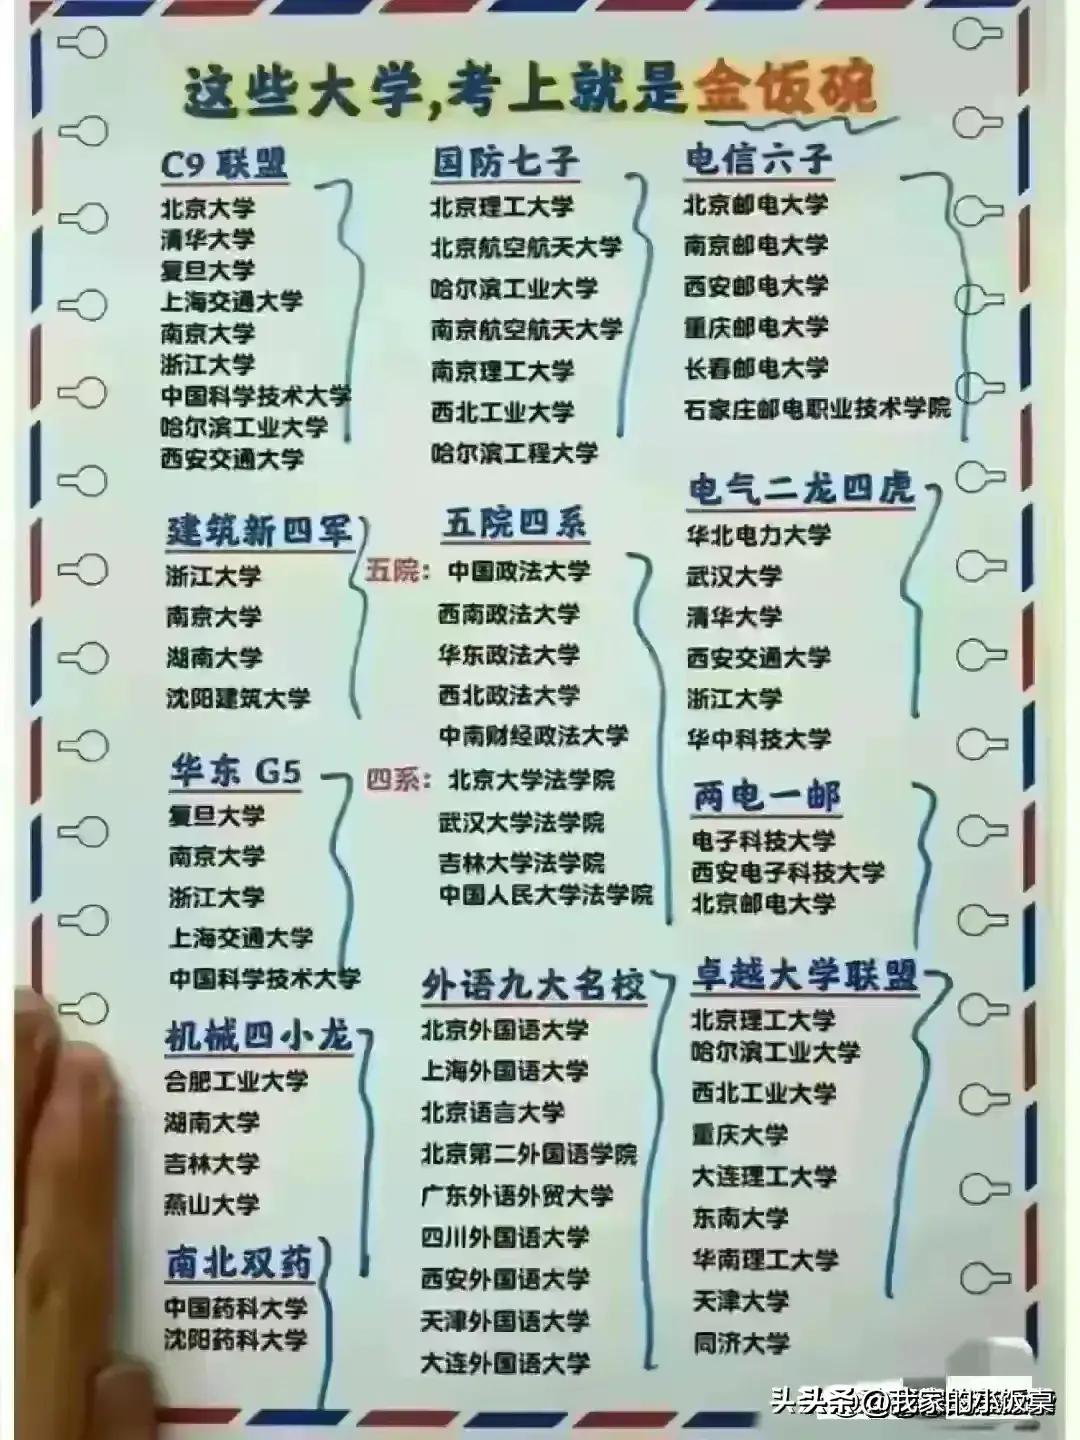 这些大学,考上就是金饭碗
C9 联盟
北京大学
清华大学
复旦大学
上海交通大学
南京大学
浙江大学
中国科学技术大学
哈尔滨工业大学
西安交通大学
国防七子
北京理工大学
北京航空航天大学
哈尔滨工业大学
南京航空航天大学
南京理工大学
西北工业大学
哈尔滨工程大学
电信六子
北京邮电大学
南京邮电大学
西安邮电大学
重庆邮电大学
长春邮电大学
石家庄邮电职业技术学院
建筑新四军
浙江大学
南京大学
湖南大学
沈阳建筑大学
五院四系
五院：中国政法大学
西南政法大学
华东政法大学
西北政法大学
中南财经政法大学
四系：北京大学法学院
武汉大学法学院
吉林大学法学院
中国人民大学法学院
电气二龙四虎
华北电力大学
武汉大学
清华大学
西安交通大学
浙江大学
华中科技大学
华东 G5
复旦大学
南京大学
浙江大学
上海交通大学
中国科学技术大学
两电一邮
电子科技大学
西安电子科技大学
北京邮电大学
机械四小龙
合肥工业大学
湖南大学
吉林大学
燕山大学
南北双药
中国药科大学
沈阳药科大学
外语九大名校
北京外国语大学
上海外国语大学
北京语言大学
北京第二外国语学院
广东外语外贸大学
四川外国语大学
西安外国语大学
天津外国语大学
大连外国语大学
卓越大学联盟
北京理工大学
哈尔滨工业大学
西北工业大学
重庆大学
大连理工大学
东南大学
华南理工大学
天津大学
同济大学
头条@我家的小饭桌